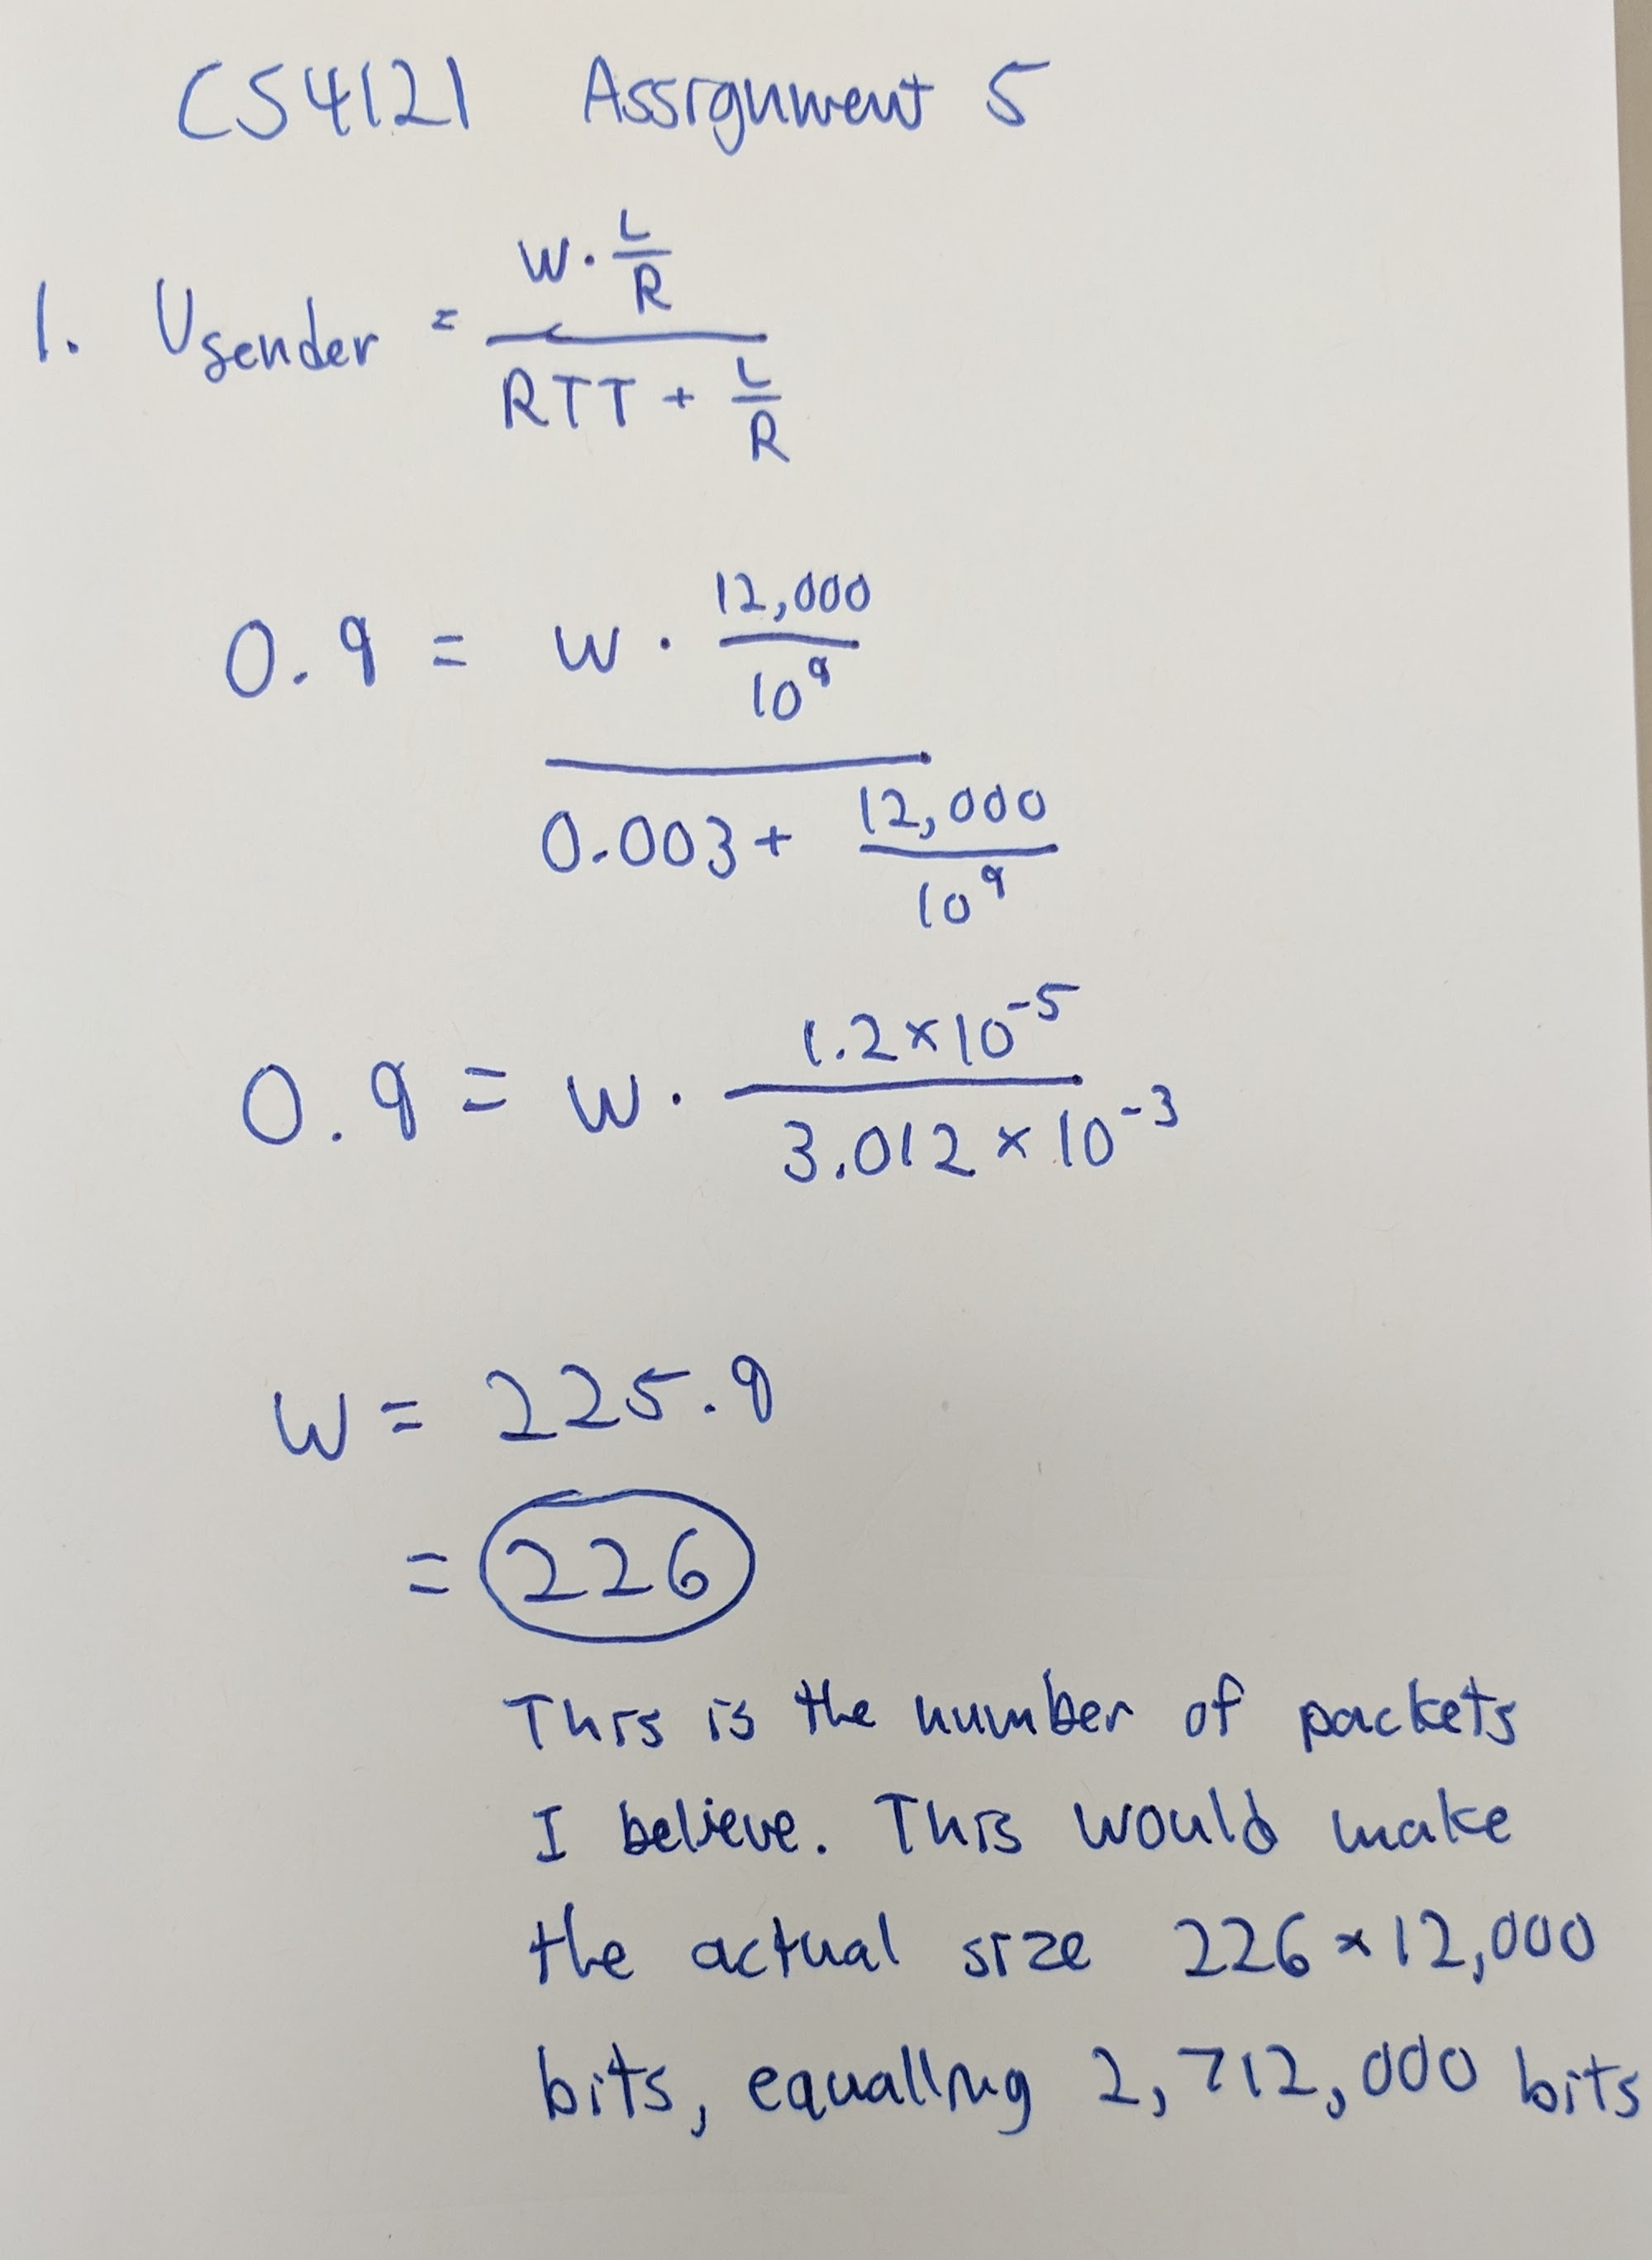 CS4121 Assignment 5
1. Usender = W · L/R
RTT + L/R
0.9 = W · 12,000/10⁹
0.003 + 12,000/10⁹
0.9 = W · 1.2 × 10⁻⁵
3.012 × 10⁻³
W = 225.9
= 226
This is the number of packets
I believe. This would make
the actual size 226 × 12,000
bits, equalling 2,712,000 bits